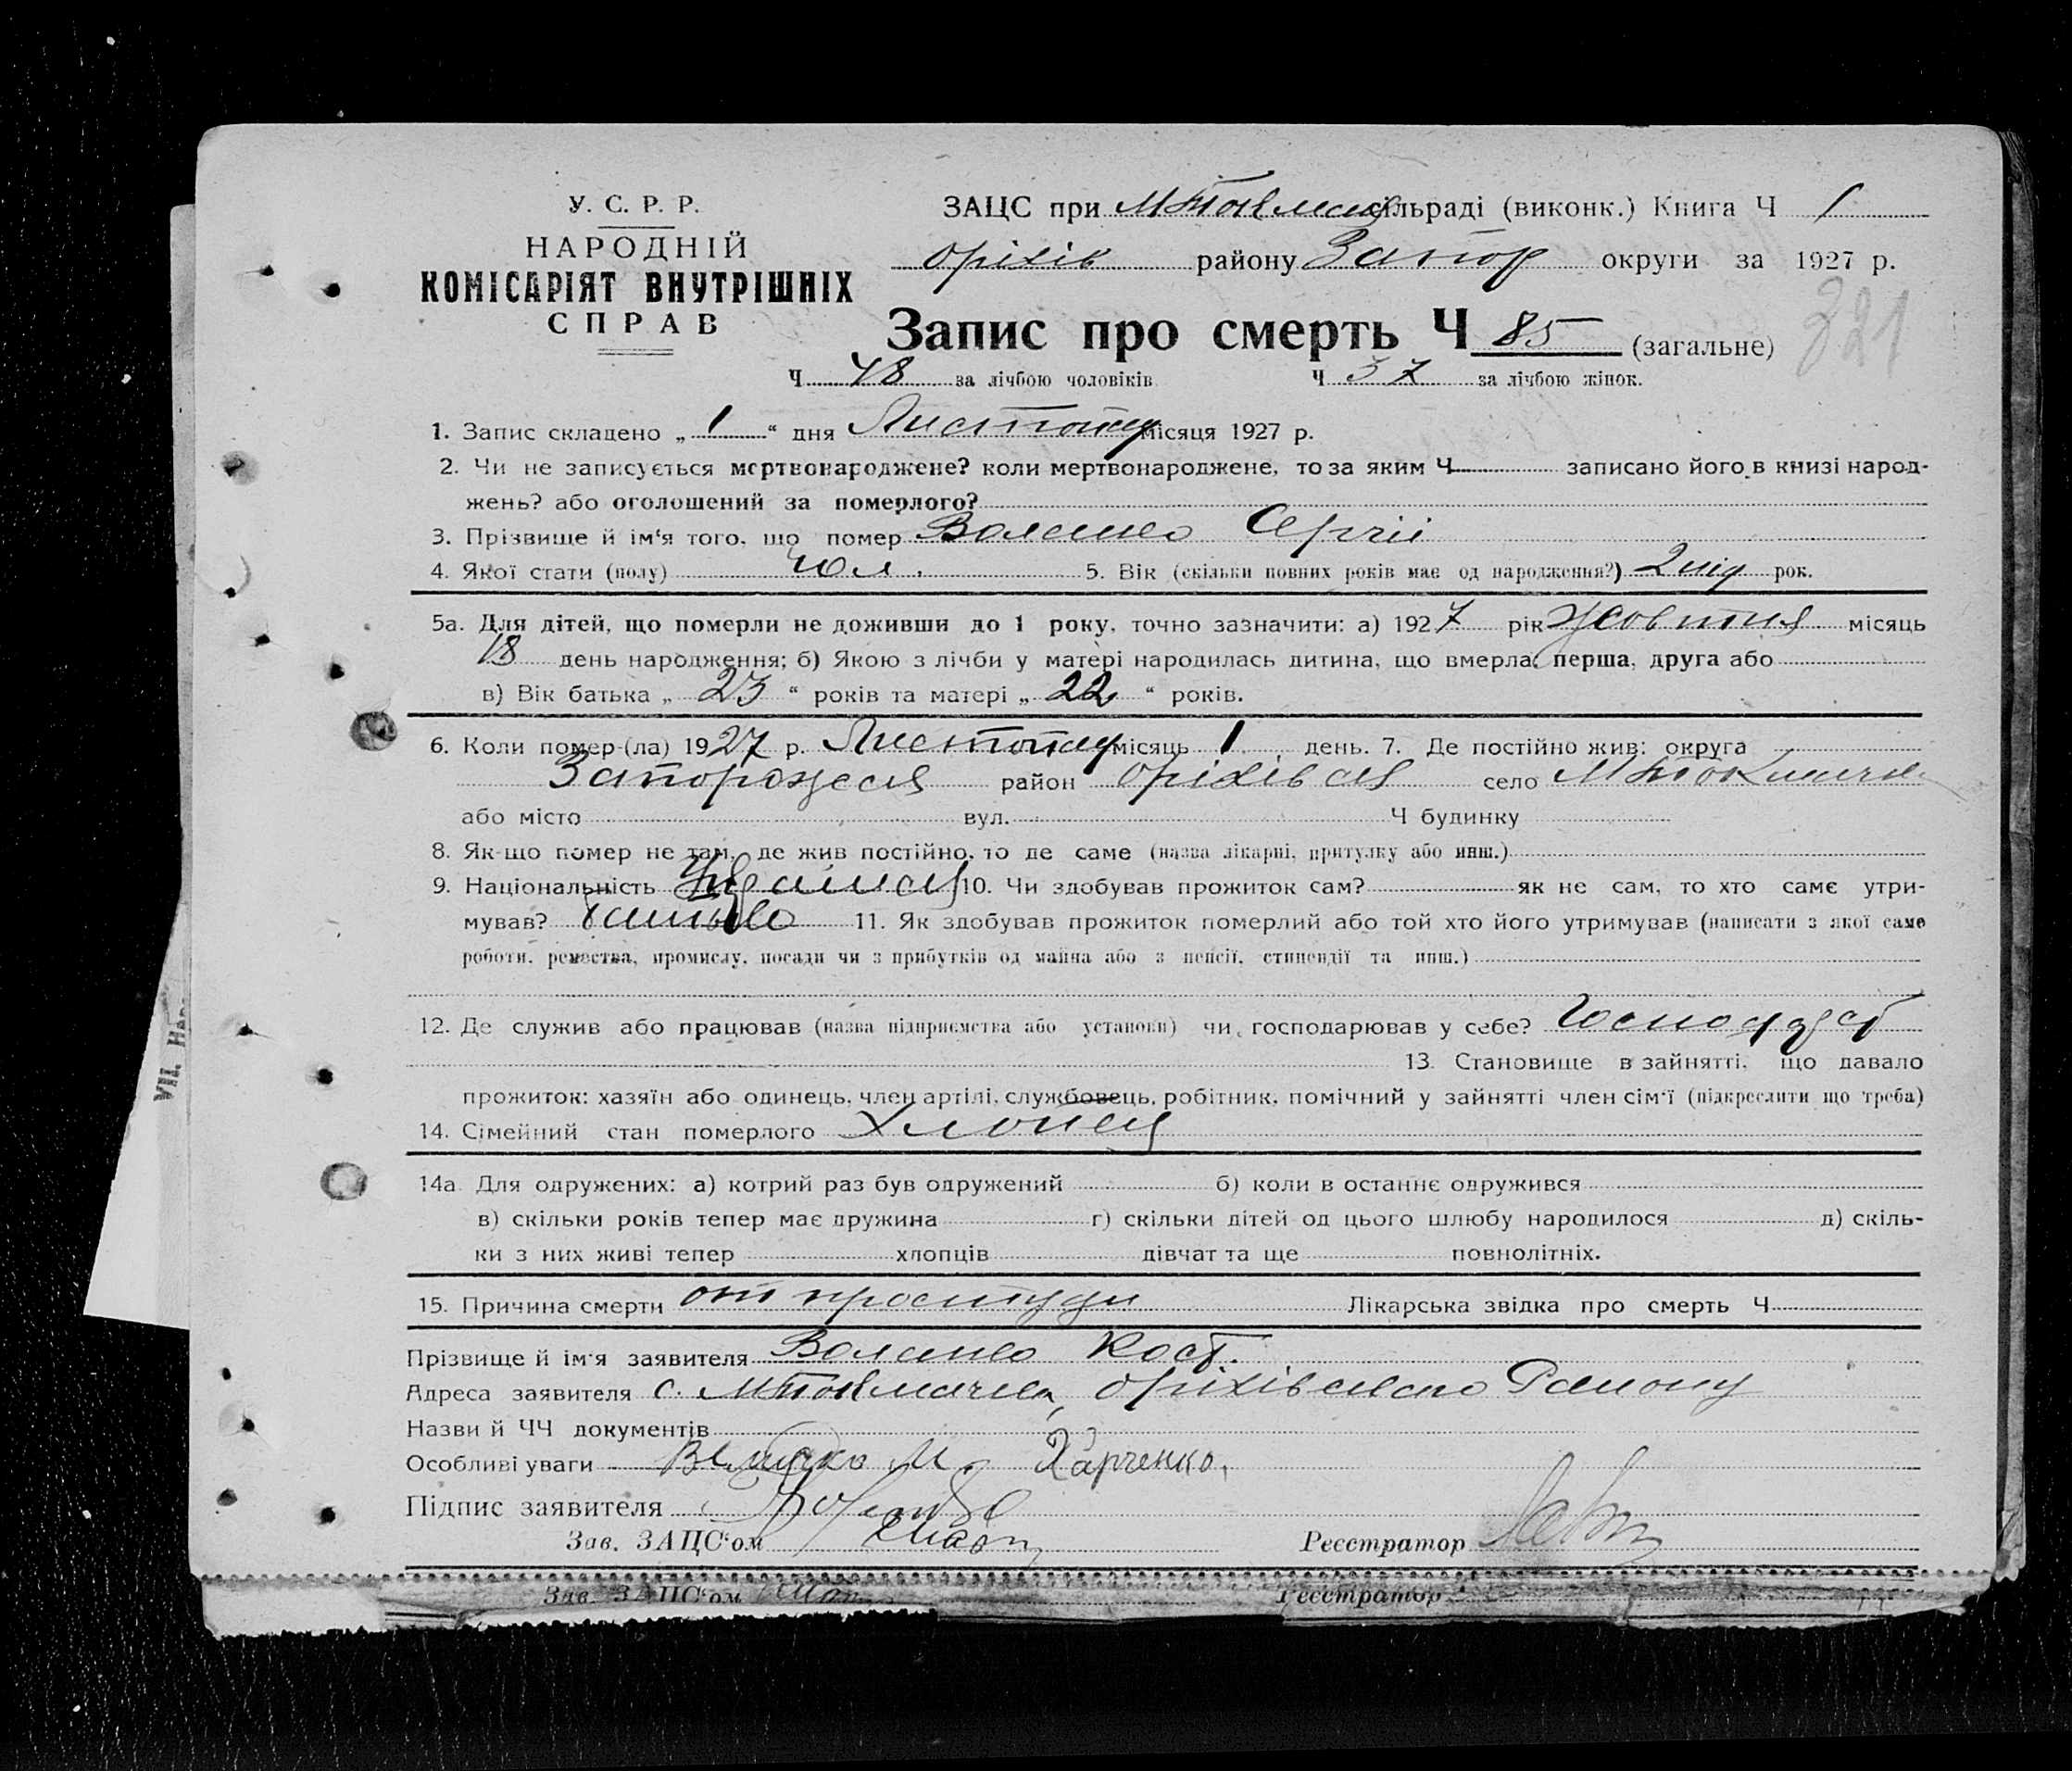 У. С. Р. Р.
НАРОДНІЙ
КОМІСАРІЯТ ВНУТРІШНІХ
СПРАВ
ЗАЦС при М Токмач сільраді (виконк.) Книга Ч 1
Оріхів району Запор округи за 1927 р.
321
Запис про смерть Ч 85 (загальне)
Ч 48 за лічбою чоловіків Ч 37 за лічбою жінок.
1. Запис складено „ 1 “ дня Листопад місяця 1927 р.
2. Чи не записується мертвонароджене? коли мертвонароджене, то за яким Ч записано його в книзі народ-
жень? або оголошений за померлого?
3. Прізвище й ім'я того, що помер Сергій
4. Якої статі (полу) чол. 5. Вік (скільки повних років має од народження?) 2 нід рок.
5а. Для дітей, що померли не доживши до 1 року, точно зазначити: а) 1927 рік Жовтня місяць
18 день народження; б) Якою з лічби у матері народилась дитина, що вмерла, перша, друга або
в) Вік батька „ 23 “ років та матері „ 22 “ років.
6. Коли помер-(ла) 1927 р. Листопад місяць 1 день. 7. Де постійно жив: округа
Запорожся район Оріхівся село М Токмачка
або місто вул. Ч будинку
8. Як-що помер не там, де жив постійно, то де саме (назва лікарні, притулку або инш.)
9. Національність 10. Чи здобував прожиток сам? як не сам, то хто саме утри-
мував? батько 11. Як здобував прожиток померлий або той хто його утримував (написати з якої саме
роботи, ремества, промислу, посади чи з прибутків од майна або з пенсії, стипендії та инш.)
12. Де служив або працював (назва підприємства або установи) чи господарював у себе?
13. Становище в зайнятті, що давало
прожиток: хазяїн або одинець, член артілі, службовець, робітник, помічний у зайнятті член сім'ї (підкреслити що треба)
14. Сімейний стан померлого Хлопец
14а. Для одружених: а) котрий раз був одружений б) коли в останнє одружився
в) скільки років тепер має дружина г) скільки дітей од цього шлюбу народилося д) скіль-
ки з них живі тепер хлопців дівчат та ще повнолітніх.
15. Причина смерти от простуди Лікарська звідка про смерть Ч
Прізвище й ім'я заявителя Кост.
Адреса заявителя с. М Токмачка, Оріхівского Району
Назви й ЧЧ документів
Особливі уваги М. Харченко,
Підпис заявителя
Зав. ЗАЦС'ом Реєстратор
Зав. ЗАЦС'ом Реєстратор